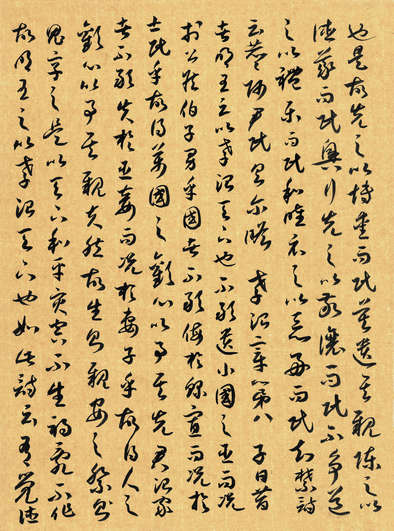 也是故先之以博愛而民莫遺其親陳之以
德義而民興行先之以敬讓而民不爭道
之以禮樂而民和睦示之以好惡而民知禁詩
云赫赫師尹民具爾瞻 孝治章第八 子曰昔
者明王之以孝治天下也不敢遺小國之臣而況
於公侯伯子男乎國者不敢侮於鰥寡而況於
士民乎故得萬國之歡心以事其先君治家
者不敢失於臣妾而況於妻子乎故得人之
歡心以事其親夫然故生則親安之祭則
鬼享之是以天下和平災害不生禍亂不作
故明王之以孝治天下也如此詩云有覺德